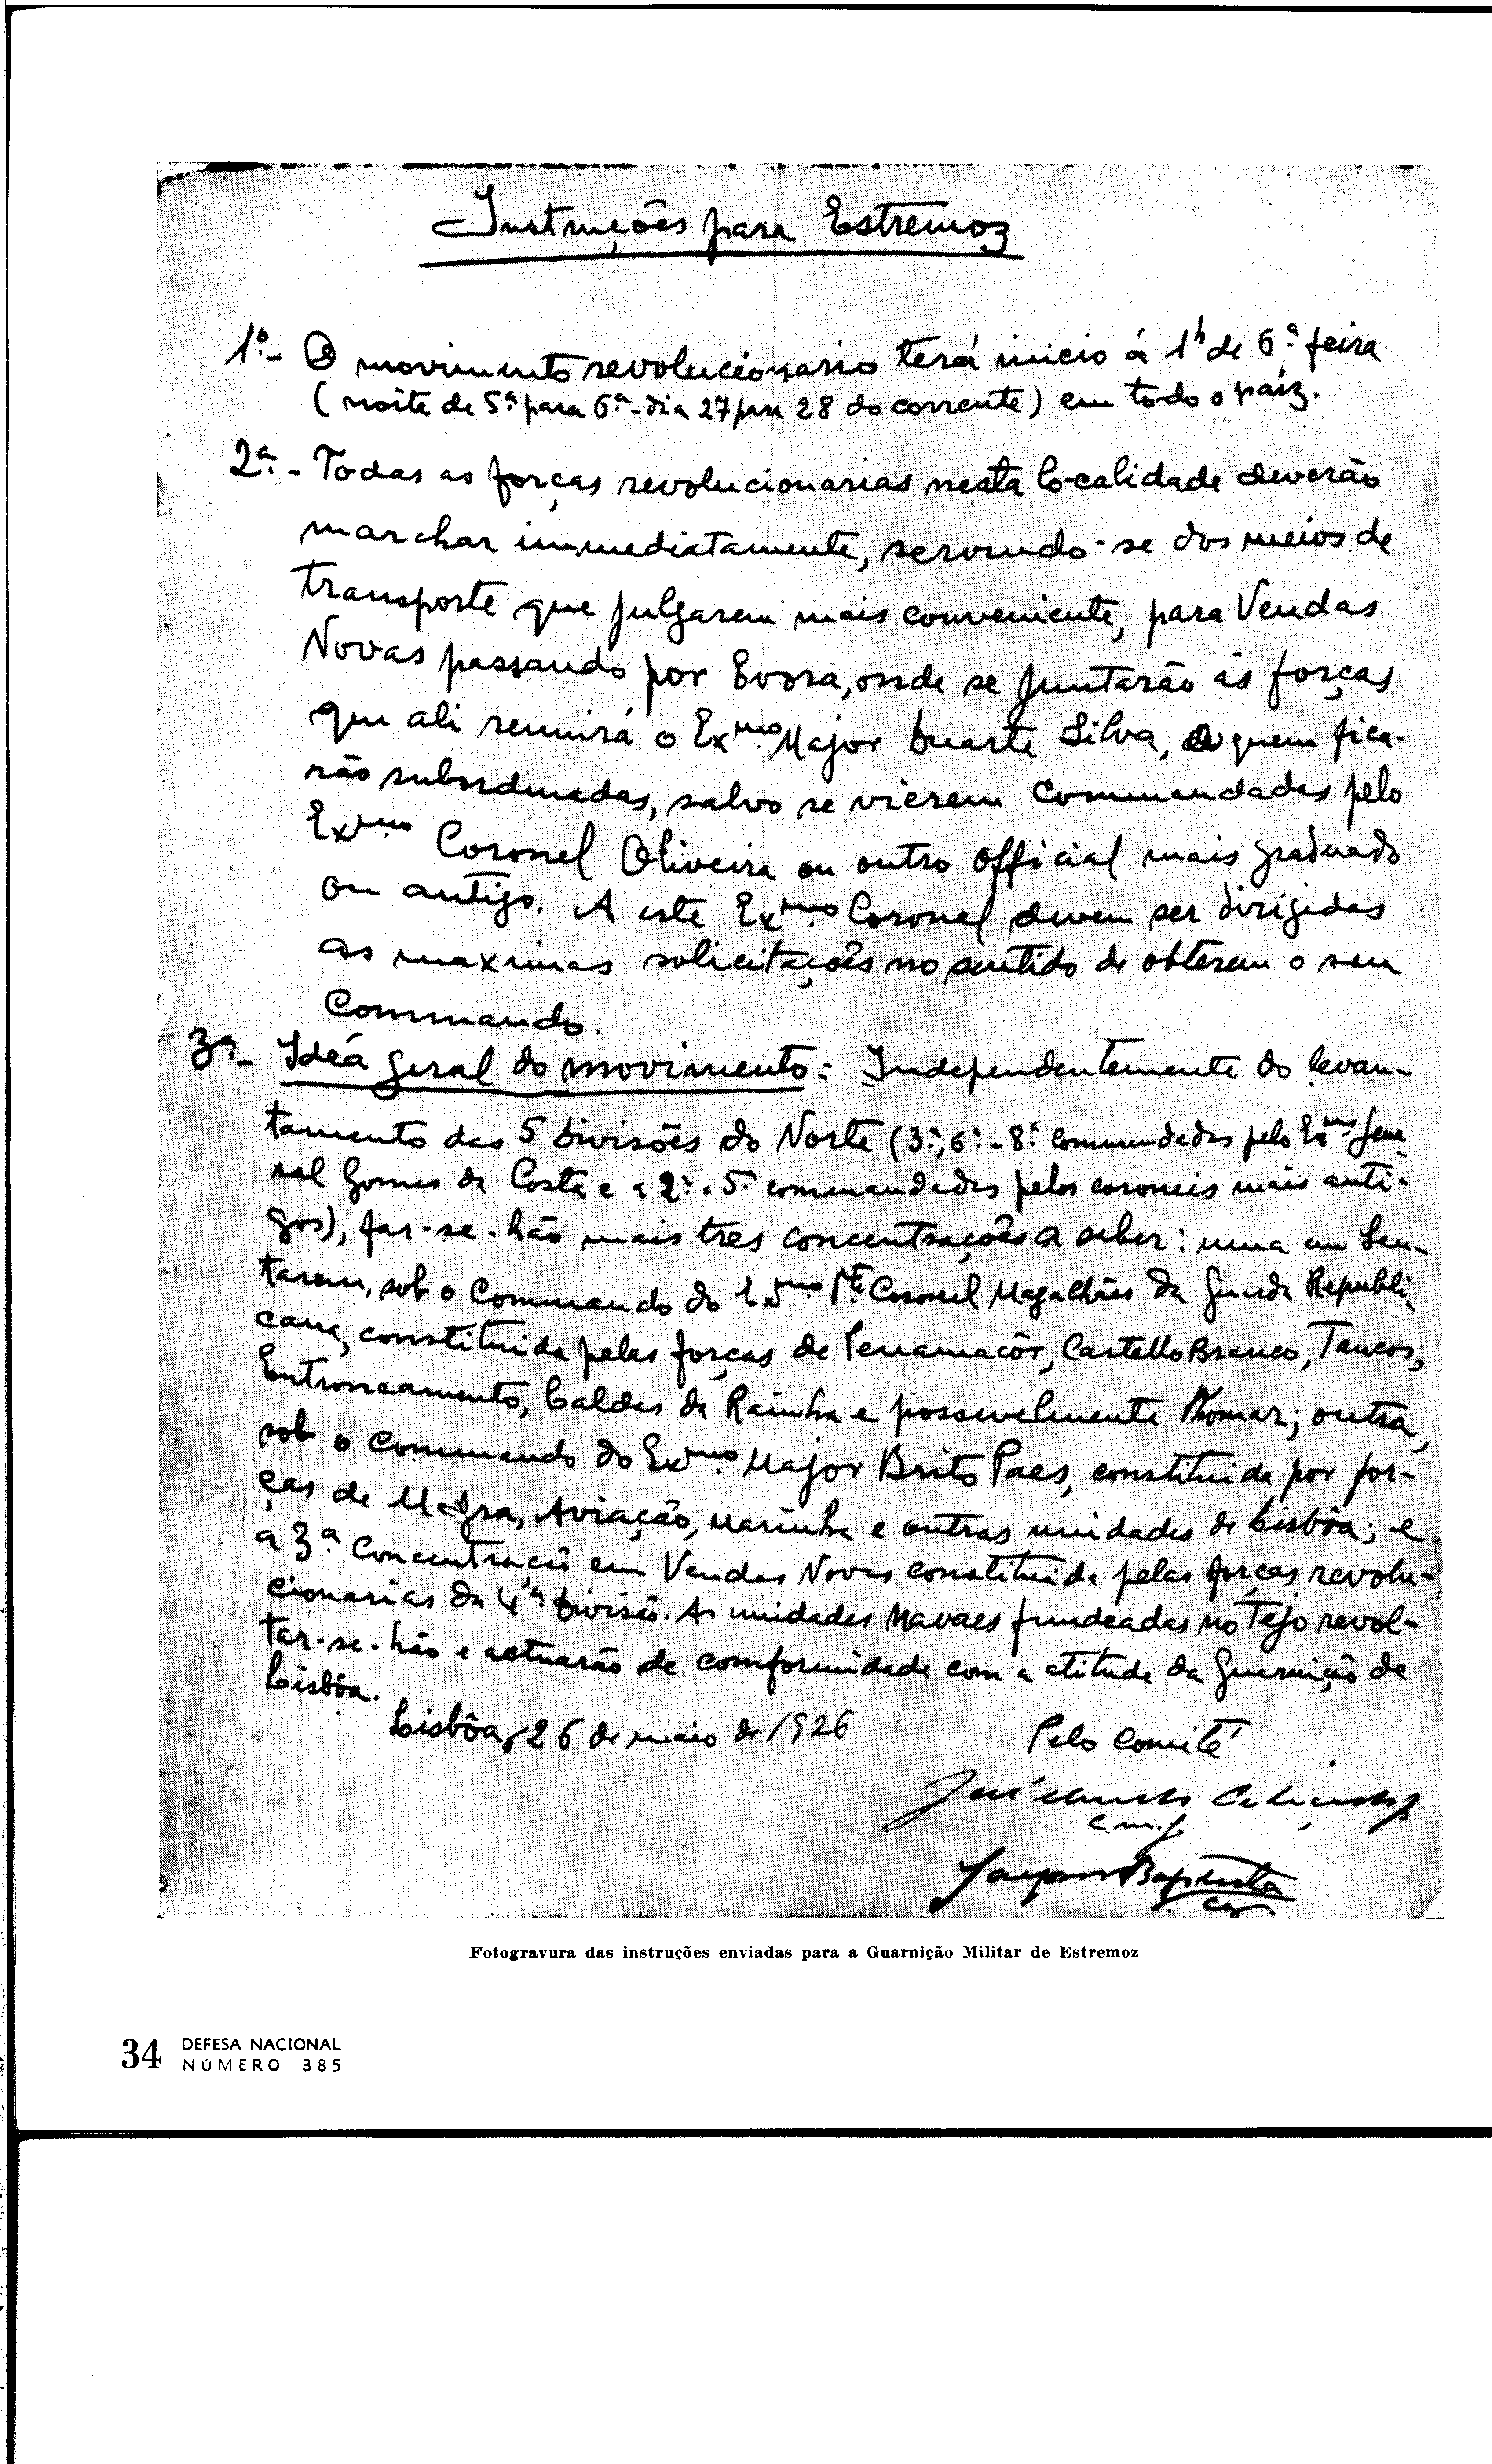 Instruções para Estremoz
1º.- O movimento revolucionario terá inicio á 1h de 6ª feira
(noite de 5ª para 6ª - dia 27 para 28 do corrente) em todo o paiz.
2ª.- Todas as forças revolucionarias nesta localidade deverão
marchar immediatamente, servindo-se dos meios de
transporte que julgarem mais conveniente, para Vendas
Novas passando por Evora, onde se juntarão ás forças
que ali reunirá o Exmo. Major Duarte Silva, a quem fica-
rão subordinadas, salvo se vierem commandadas pelo
Exmo Coronel Oliveira ou outro official mais graduado
ou antigo. A este Exmo. Coronel devem ser dirigidas
as maximas solicitações no sentido de obterem o seu
Commando.
3ª- Idéa geral do movimento: Independentemente do levan-
tamento das 5 Divisões do Norte (3ª, 6ª e 8ª commandadas pelo Exmo Gene-
ral Gomes da Costa e a 2ª e 5ª commandadas pelos coroneis mais anti-
gos), far-se-hão mais tres concentrações a saber: uma em San-
tarem, sob o Commando do Exmo Te. Coronel Magalhães da Guarda Republi-
cana, constituida pelas forças de Penamacôr, Castello Branco, Tancos,
Entroncamento, Caldas da Rainha e possivelmente Thomar; outra,
sob o Commando do Exmo. Major Brito Paes, constituida por for-
ças de Mafra, Aviação, Marinha e outras unidades de Lisbôa; e
a 3ª Concentração em Vendas Novas constituida pelas forças revolu-
cionarias da 4ª Divisão. As unidades Navaes fundeadas no Tejo revol-
tar-se-hão e actuarão de comformidade com a atitude da Guarnição de
Lisbôa.
Lisbôa, 26 de maio de 1926
Pelo Comité
José
Baptista
Fotogravura das instruções enviadas para a Guarnição Militar de Estremoz
34 DEFESA NACIONAL
NÚMERO 385